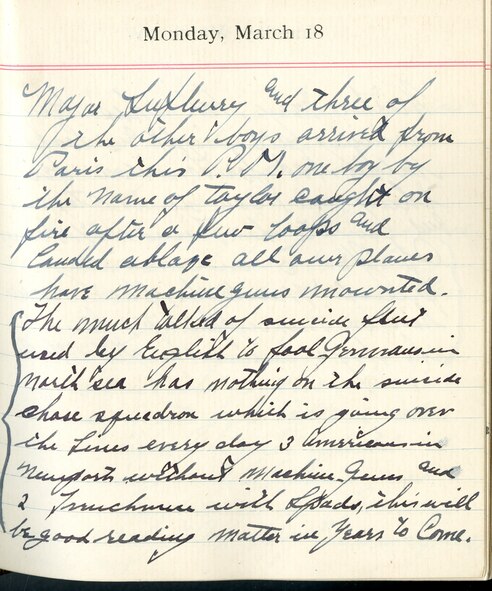 Monday, March 18
Major Huffer and three of
the other boys arrived from
Paris this P.M. one boy by
the name of Taylor caught on
fire after a few loops and
landed ablaze all our planes
have machine guns mounted.
The much talked of suicide fleet
used by English to fool Germans in
North sea has nothing on the suicide
chase squadron which is going over
the lines every day 3 Americans in
Nieuports without machine guns and
2 Frenchmen with Spads, this will
be good reading matter in years to come.